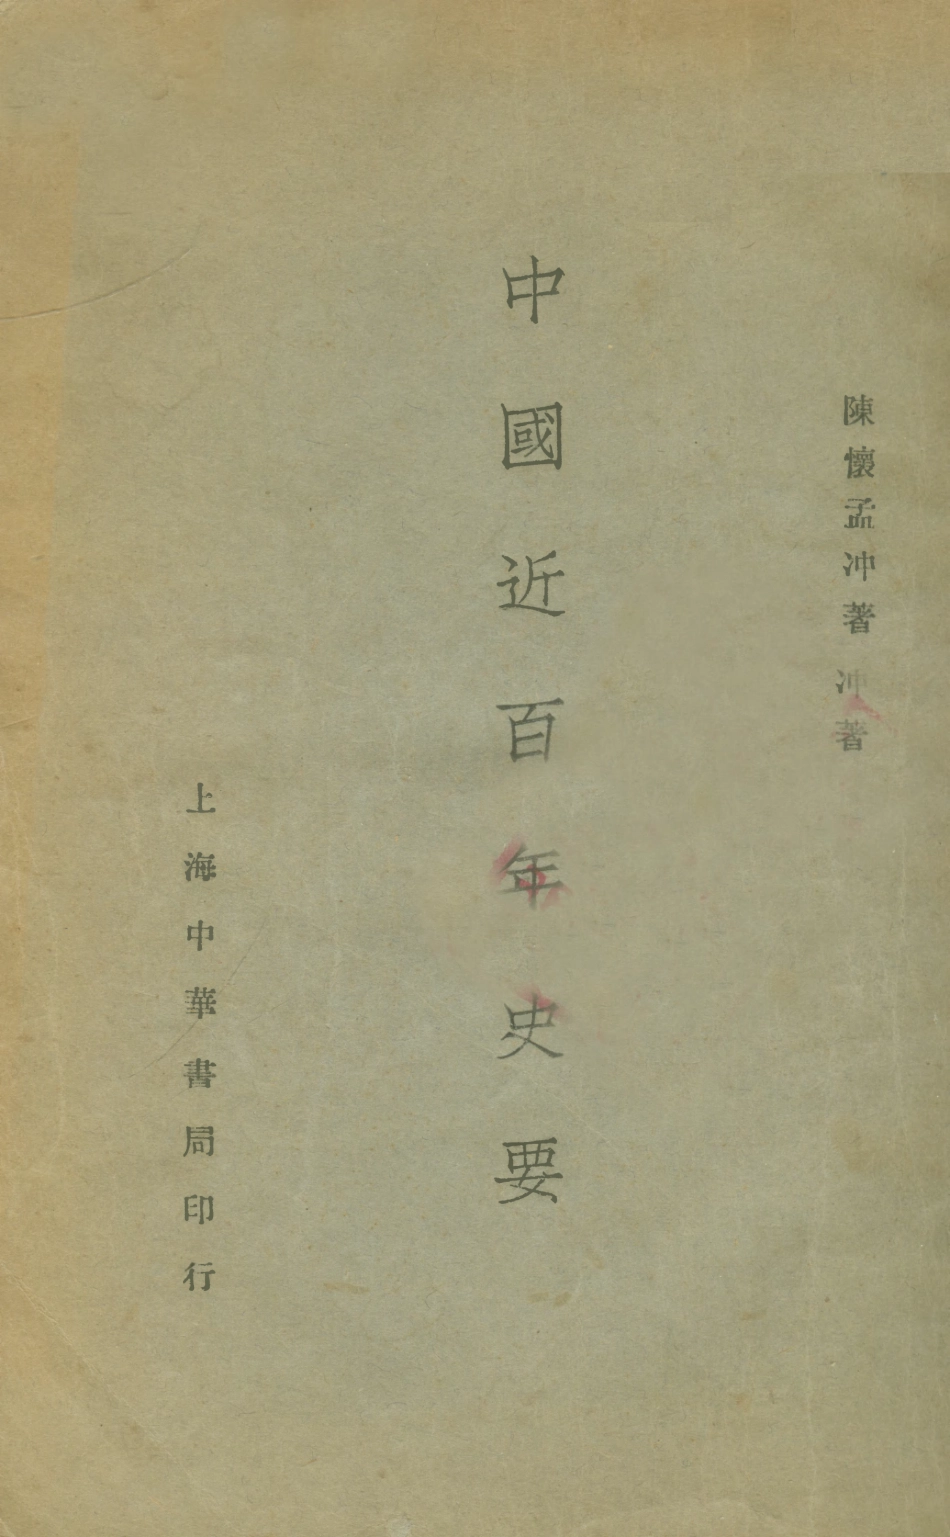 陳懷孟冲著冲著
中國近百年史要
上海中華書局印行